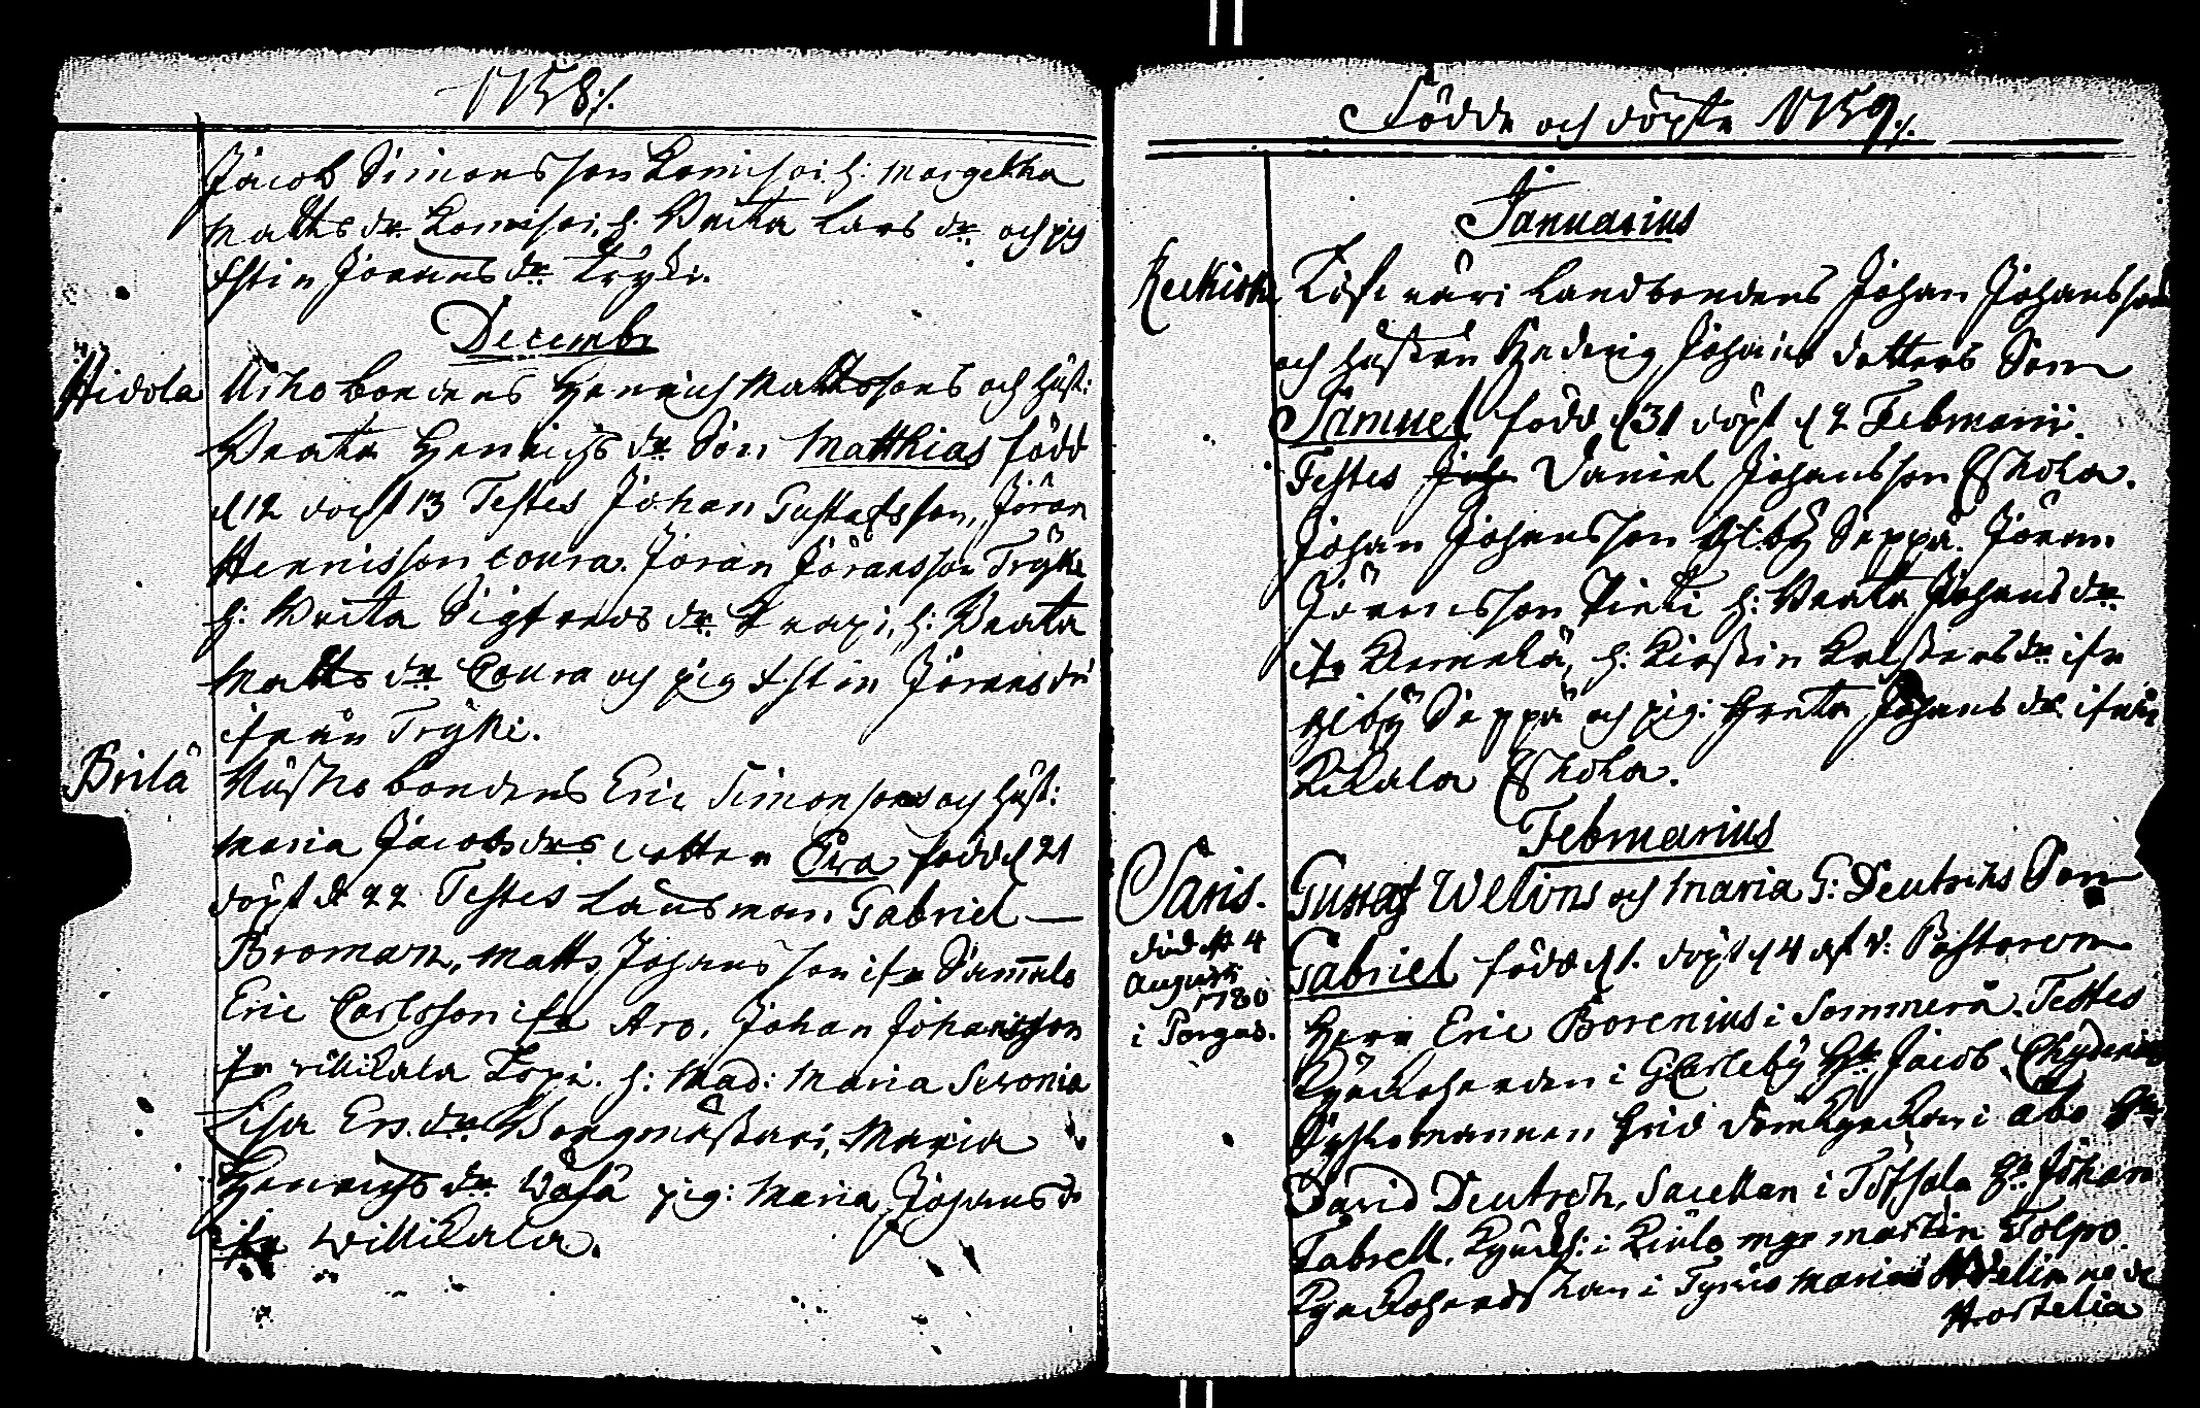 1758 ./.
Jacob Simonsson Komisoi. h: Margetha
Matts dr Komisoi, h. Beata Lars dr och pig
Stin Jörans dr Tryki.
Decembr
Hidola
Bondens Henrich Mattssons och hust:
Beata Henrichs dr Son Matthias född
d 12 döpt 13 Testes Johan Gustafsson, Jöran
Hennisson Coura. Jöran Jöransson Tryki
h: Beata Sigfreds dr h: Beata
Matts dr Coura och pig Stin Jörans dr
ifrån Tryki.
Prilä
bondens Eric Simonsons och hust:
Maria Jacobs drs dotter Eva född d 21
döpt d 22 Testes Länsman. Gabriel —
Broman, Matts Johansson ifr Sammalo
Eric Carlsson ifr Aro. Johan Johansson
ifr Willikala h: Mad: Maria Seronia
Lisa Ers. dr Maria
Henrichs dr pig: Maria Johans dr
ifr Willikala.
Födde och döpte 1759 ./.
Januarius
Landbondens Johan Johansson
och hustrun Hedvig Johans dotters Son
Samuel född d 31 döpt d 2 Februarii.
Testes Daniel Johansson Eskola.
Johan Johansson Ylby Seppä. Jöran
Jöransson h: Beata Johans dr
ifr h: Kirstin dr ifr
Ylby Seppä och pig: Greta Johans dr ifrån
Kikala Eskola.
Februarius
Saris.
död d 4
Augusti
1780
i Borgås.
Gustaf Welins och Maria G: Deutschs Son
Gabriel född d 1. döpt d 4 af v: Pastoren
Herr Eric Borenius i Sommerä. Testes
Kyrckoherden i GCarleby Hr Jacob Chydenius
Sysslomannen vid domkyrckan i Åbo Hr
David Deutsch, Sacellan i Töfsala Hr Johan
Fabrell. Kyrckoh: i Kiulo mgr Martin Tolpo
Kyrckoherdskan i Tyrvis Maria Welin
Hortelia